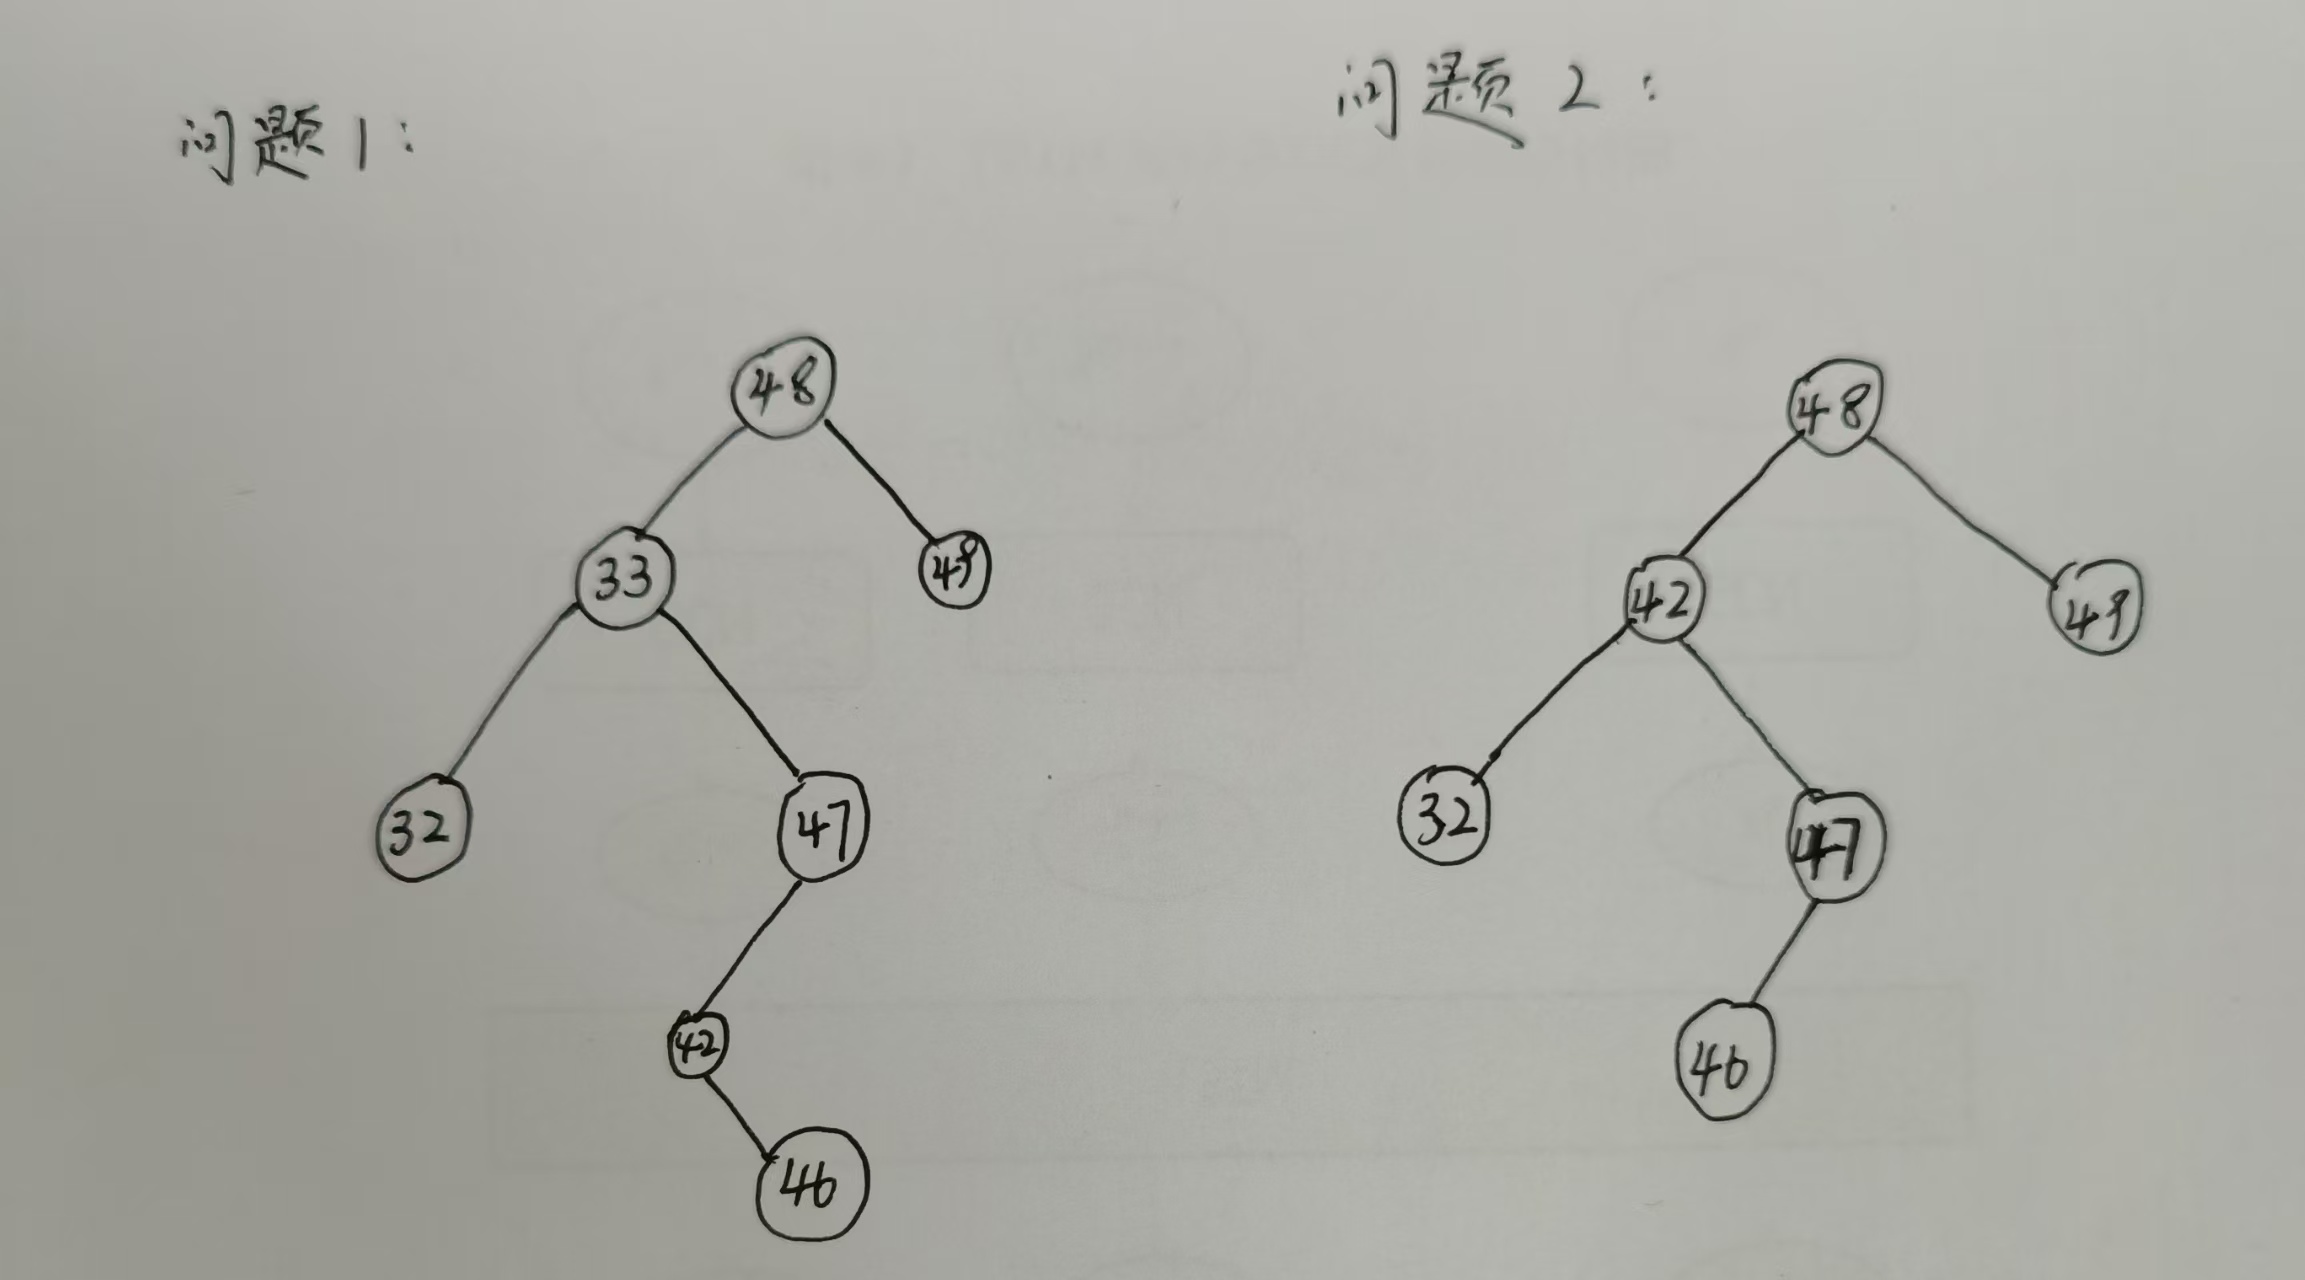 问题1:
问题2:
48
33
49
32
47
42
46
48
42
49
32
47
46